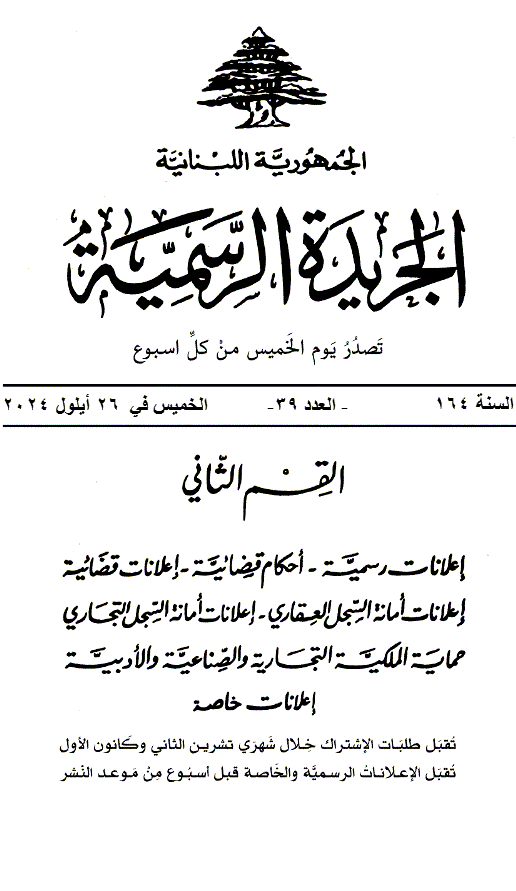 الجُمهُوريَّة اللبْنانيَّة
الجَريدَة الرسَّمِيَّة
تَصدُرُ يَوم الخَميس منْ كلِّ اسبوع
السنة ١٦٤ - العدد ٣٩- الخميس في ٢٦ أيلول ٢٠٢٤
القِسْم الثَّاني
إعلانات رسميَّة - أحكام قضائيَّة - إعلانات قضائية
إعلانات أمانة السِّجل العقاري - إعلانات أمانة السِّجل التجاري
حماية الملكيَّة التجارية والصِّناعيَّة والأدبيَّة
إعلانات خاصة
تُقبَل طلبَات الإشتراك خِلال شَهرَي تشرين الثاني وكَانون الأول
تُقبَل الإعلاناتُ الرسميَّة والخَاصة قبل أسبُوع مِنْ مَوعد النَشر